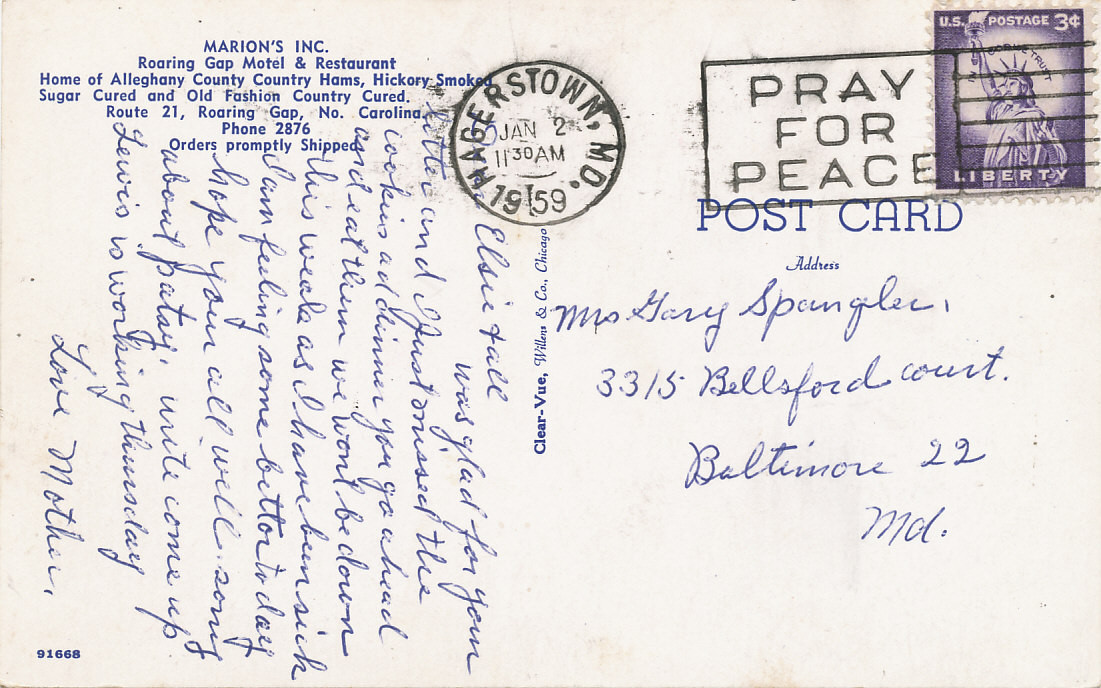 MARION'S INC.
Roaring Gap Motel & Restaurant
Home of Alleghany County Country Hams, Hickory Smoked
Sugar Cured and Old Fashion Country Cured.
Route 21, Roaring Gap, No. Carolina
Phone 2876
Orders promptly Shipped
HAGERSTOWN, MD.
JAN 2
11 30 AM
1959
PRAY
FOR
PEACE
U.S. POSTAGE 3¢
IN GOD WE TRUST
LIBERTY
POST CARD
Address
Mrs Gary Spangler,
3315 Bellsford court.
Baltimore 22
Md.
Clear-Vue, Willens & Co., Chicago
Elsie & all
was glad for your
letter and I Just missed the
cookies ad dinner you go ahead
and eat them we wont be down
this week as I have been sick
I am feeling some better to day
hope your all well. sorry
about patsy. write come up
Lewis is working thursday
Love Mother.
91668